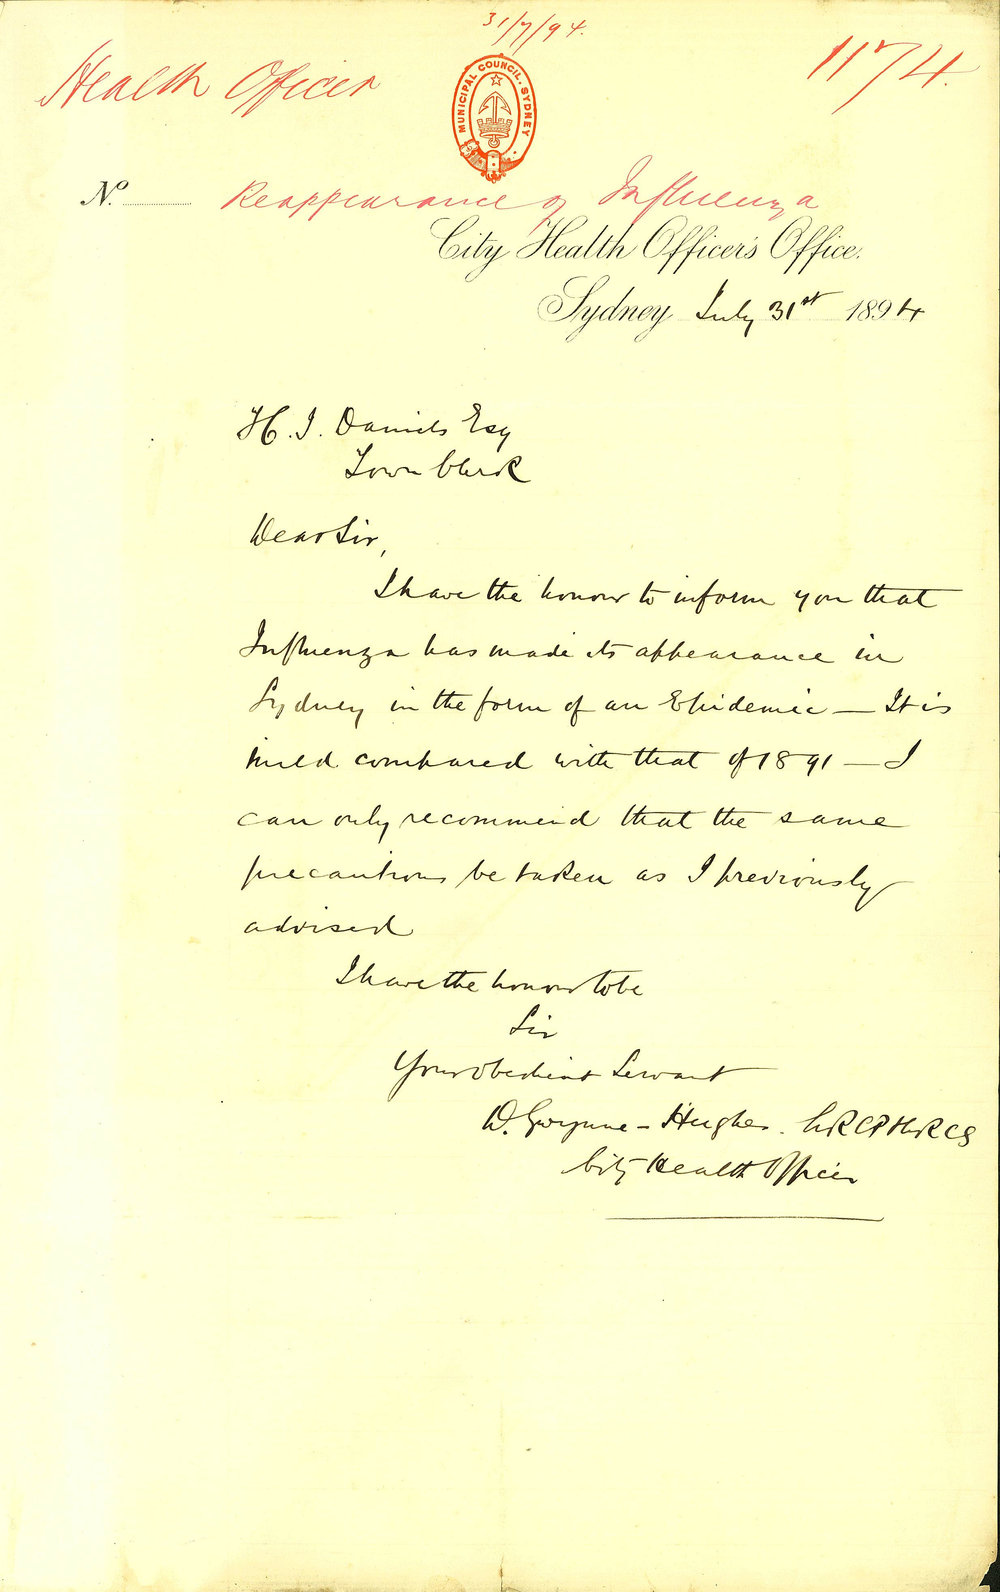 31/7/94.
Health Officer
1174.
MUNICIPAL COUNCIL. SYDNEY
No.
Reappearance of Influenza
City Health Officer's Office.
Sydney July 31st 1894
H. J. Daniels Esq
Town Clerk
Dear Sir,
I have the honour to inform you that
Influenza has made its appearance in
Sydney in the form of an Epidemic — It is
mild compared with that of 1891 — I
can only recommend that the same
precautions be taken as I previously
advised
I have the honour to be
Sir
Your obedient Servant
W. Gwynne-Hughes. LRCP MRCS
City Health Officer